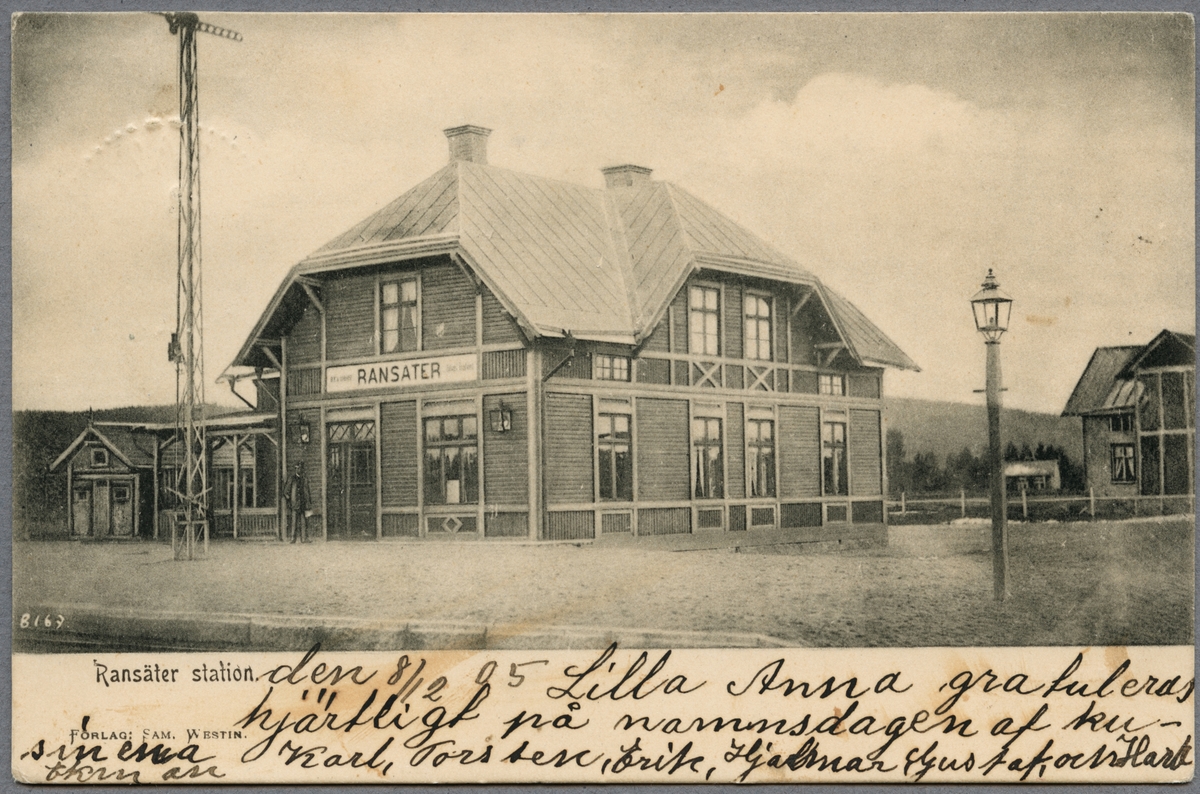 RANSÄTER
8163
Ransäter station.
den 8/12 05 Lilla Anna gratuleras
hjärtligt på namnsdagen af ku-
FÖRLAG: SAM. WESTIN.
sinerna Karl, Torsten, Erik, Hjalmar, Gustaf, och